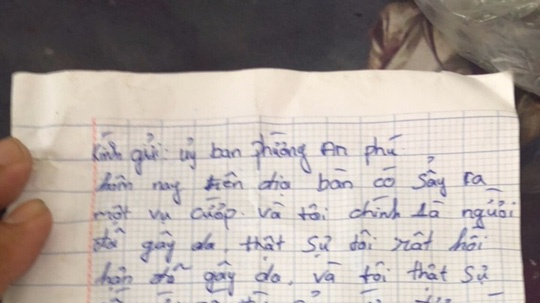 Kính gửi: uỷ ban phường An phú
hôm nay trên địa bàn có sảy ra
một vụ cướp. và tôi chính là người
đã gây da, thật sự tôi rất hối
hận đã gây da, và tôi thật sự